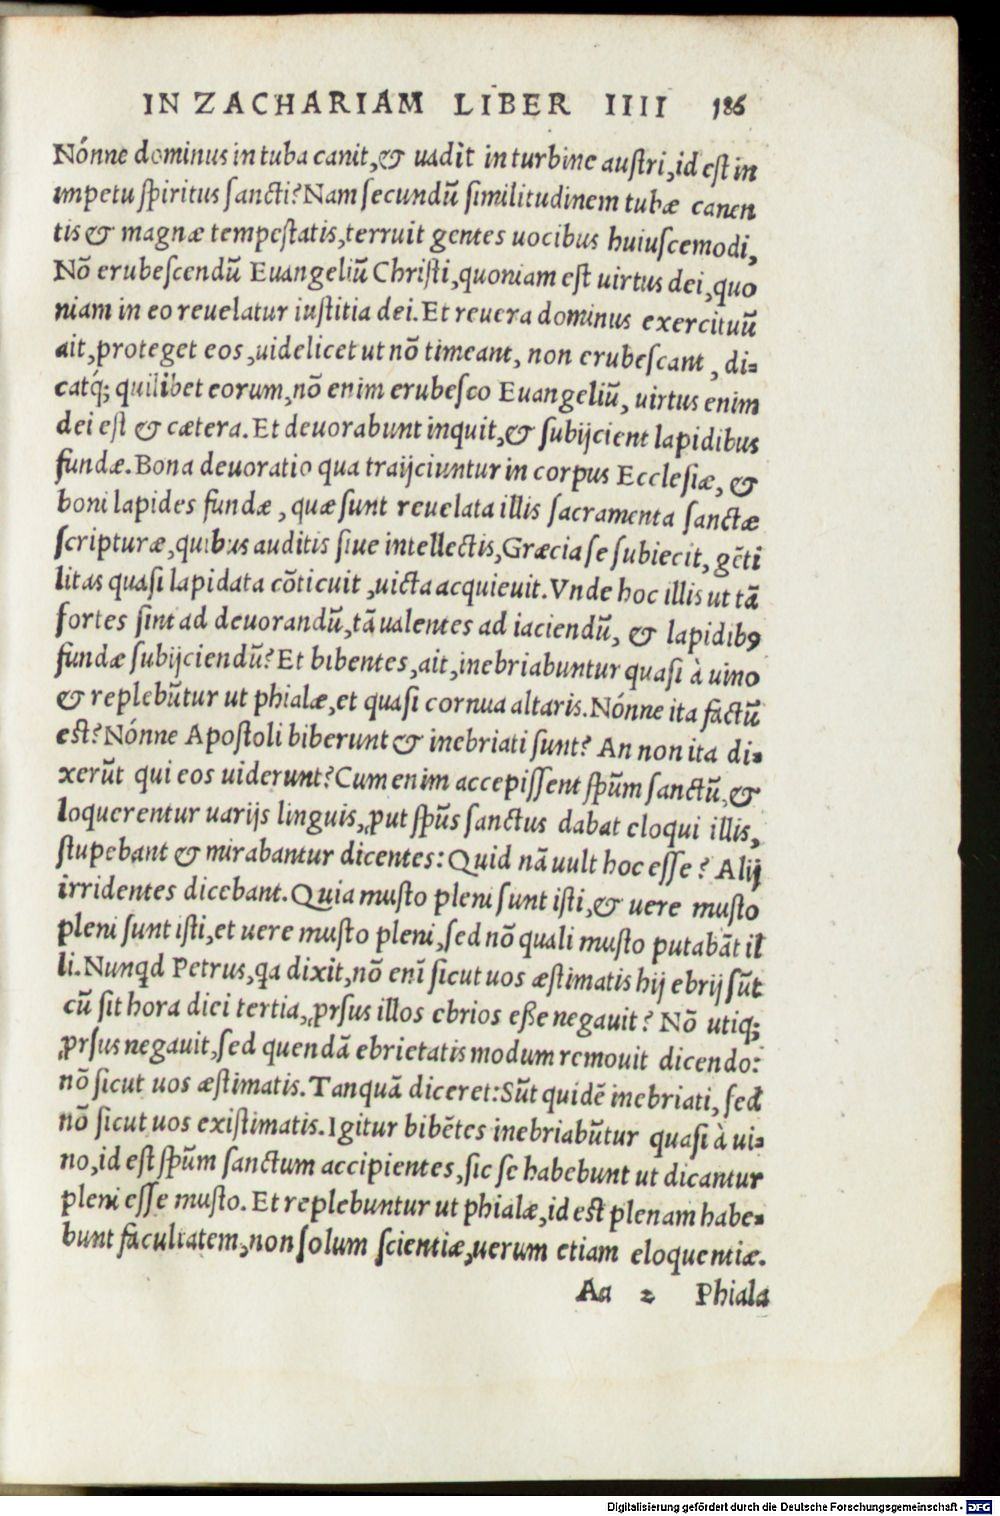 IN ZACHARIAM LIBER IIII 186
Nónne dominus in tuba canit, & uadit in turbine austri, id est in
impetu spiritus sancti? Nam secundũ similitudinem tubæ canen
tis & magnæ tempestatis, terruit gentes uocibus huiuscemodi,
Nõ erubescendũ Euangeliũ Christi, quoniam est uirtus dei, quo
niam in eo reuelatur iustitia dei. Et reuera dominus exercituũ
ait, proteget eos, uidelicet ut nõ timeant, non erubescant, di=
catq́; quilibet eorum, nõ enim erubesco Euangeliũ, uirtus enim
dei est & cætera. Et deuorabunt inquit, & subijcient lapidibus
fundæ. Bona deuoratio qua traijciuntur in corpus Ecclesiæ, &
boni lapides fundæ, quæ sunt reuelata illis sacramenta sanctæ
scripturæ, quibus auditis siue intellectis, Græcia se subiecit, gẽti
litas quasi lapidata cõticuit, uicta acquieuit. Vnde hoc illis ut tã
fortes sint ad deuorandũ, tã ualentes ad iaciendũ, & lapidibꝰ
fundæ subijciendũ? Et bibentes, ait, inebriabuntur quasi à uino
& replebũtur ut phialæ, et quasi cornua altaris. Nónne ita factũ
est? Nónne Apostoli biberunt & inebriati sunt? An non ita di=
xerũt qui eos uiderunt? Cum enim accepissent spũm sanctũ, &
loquerentur uarijs linguis, ꝓut spũs sanctus dabat eloqui illis,
stupebant & mirabantur dicentes: Quid nã uult hoc esse? Alij
irridentes dicebant. Quia musto pleni sunt isti, & uere musto
pleni sunt isti, et uere musto pleni, sed nõ quali musto putabãt il
li. Nunqd Petrus, qa dixit, nõ enĩ sicut uos æstimatis hij ebrij sũt
cũ sit hora diei tertia, ꝓrsus illos ebrios eße negauit? Nõ utiq;
ꝓrsus negauit, sed quendã ebrietatis modum remouit dicendo:
nõ sicut uos æstimatis. Tanquã diceret: Sũt quidẽ inebriati, sed
nõ sicut uos existimatis. Igitur bibẽtes inebriabũtur quasi à ui=
no, id est spũm sanctum accipientes, sic se habebunt ut dicantur
pleni esse musto. Et replebuntur ut phialæ, id est plenam habe=
bunt facultatem, non solum scientiæ, uerum etiam eloquentiæ.
Aa 2 Phiala
Digitalisierung gefördert durch die Deutsche Forschungsgemeinschaft - DFG